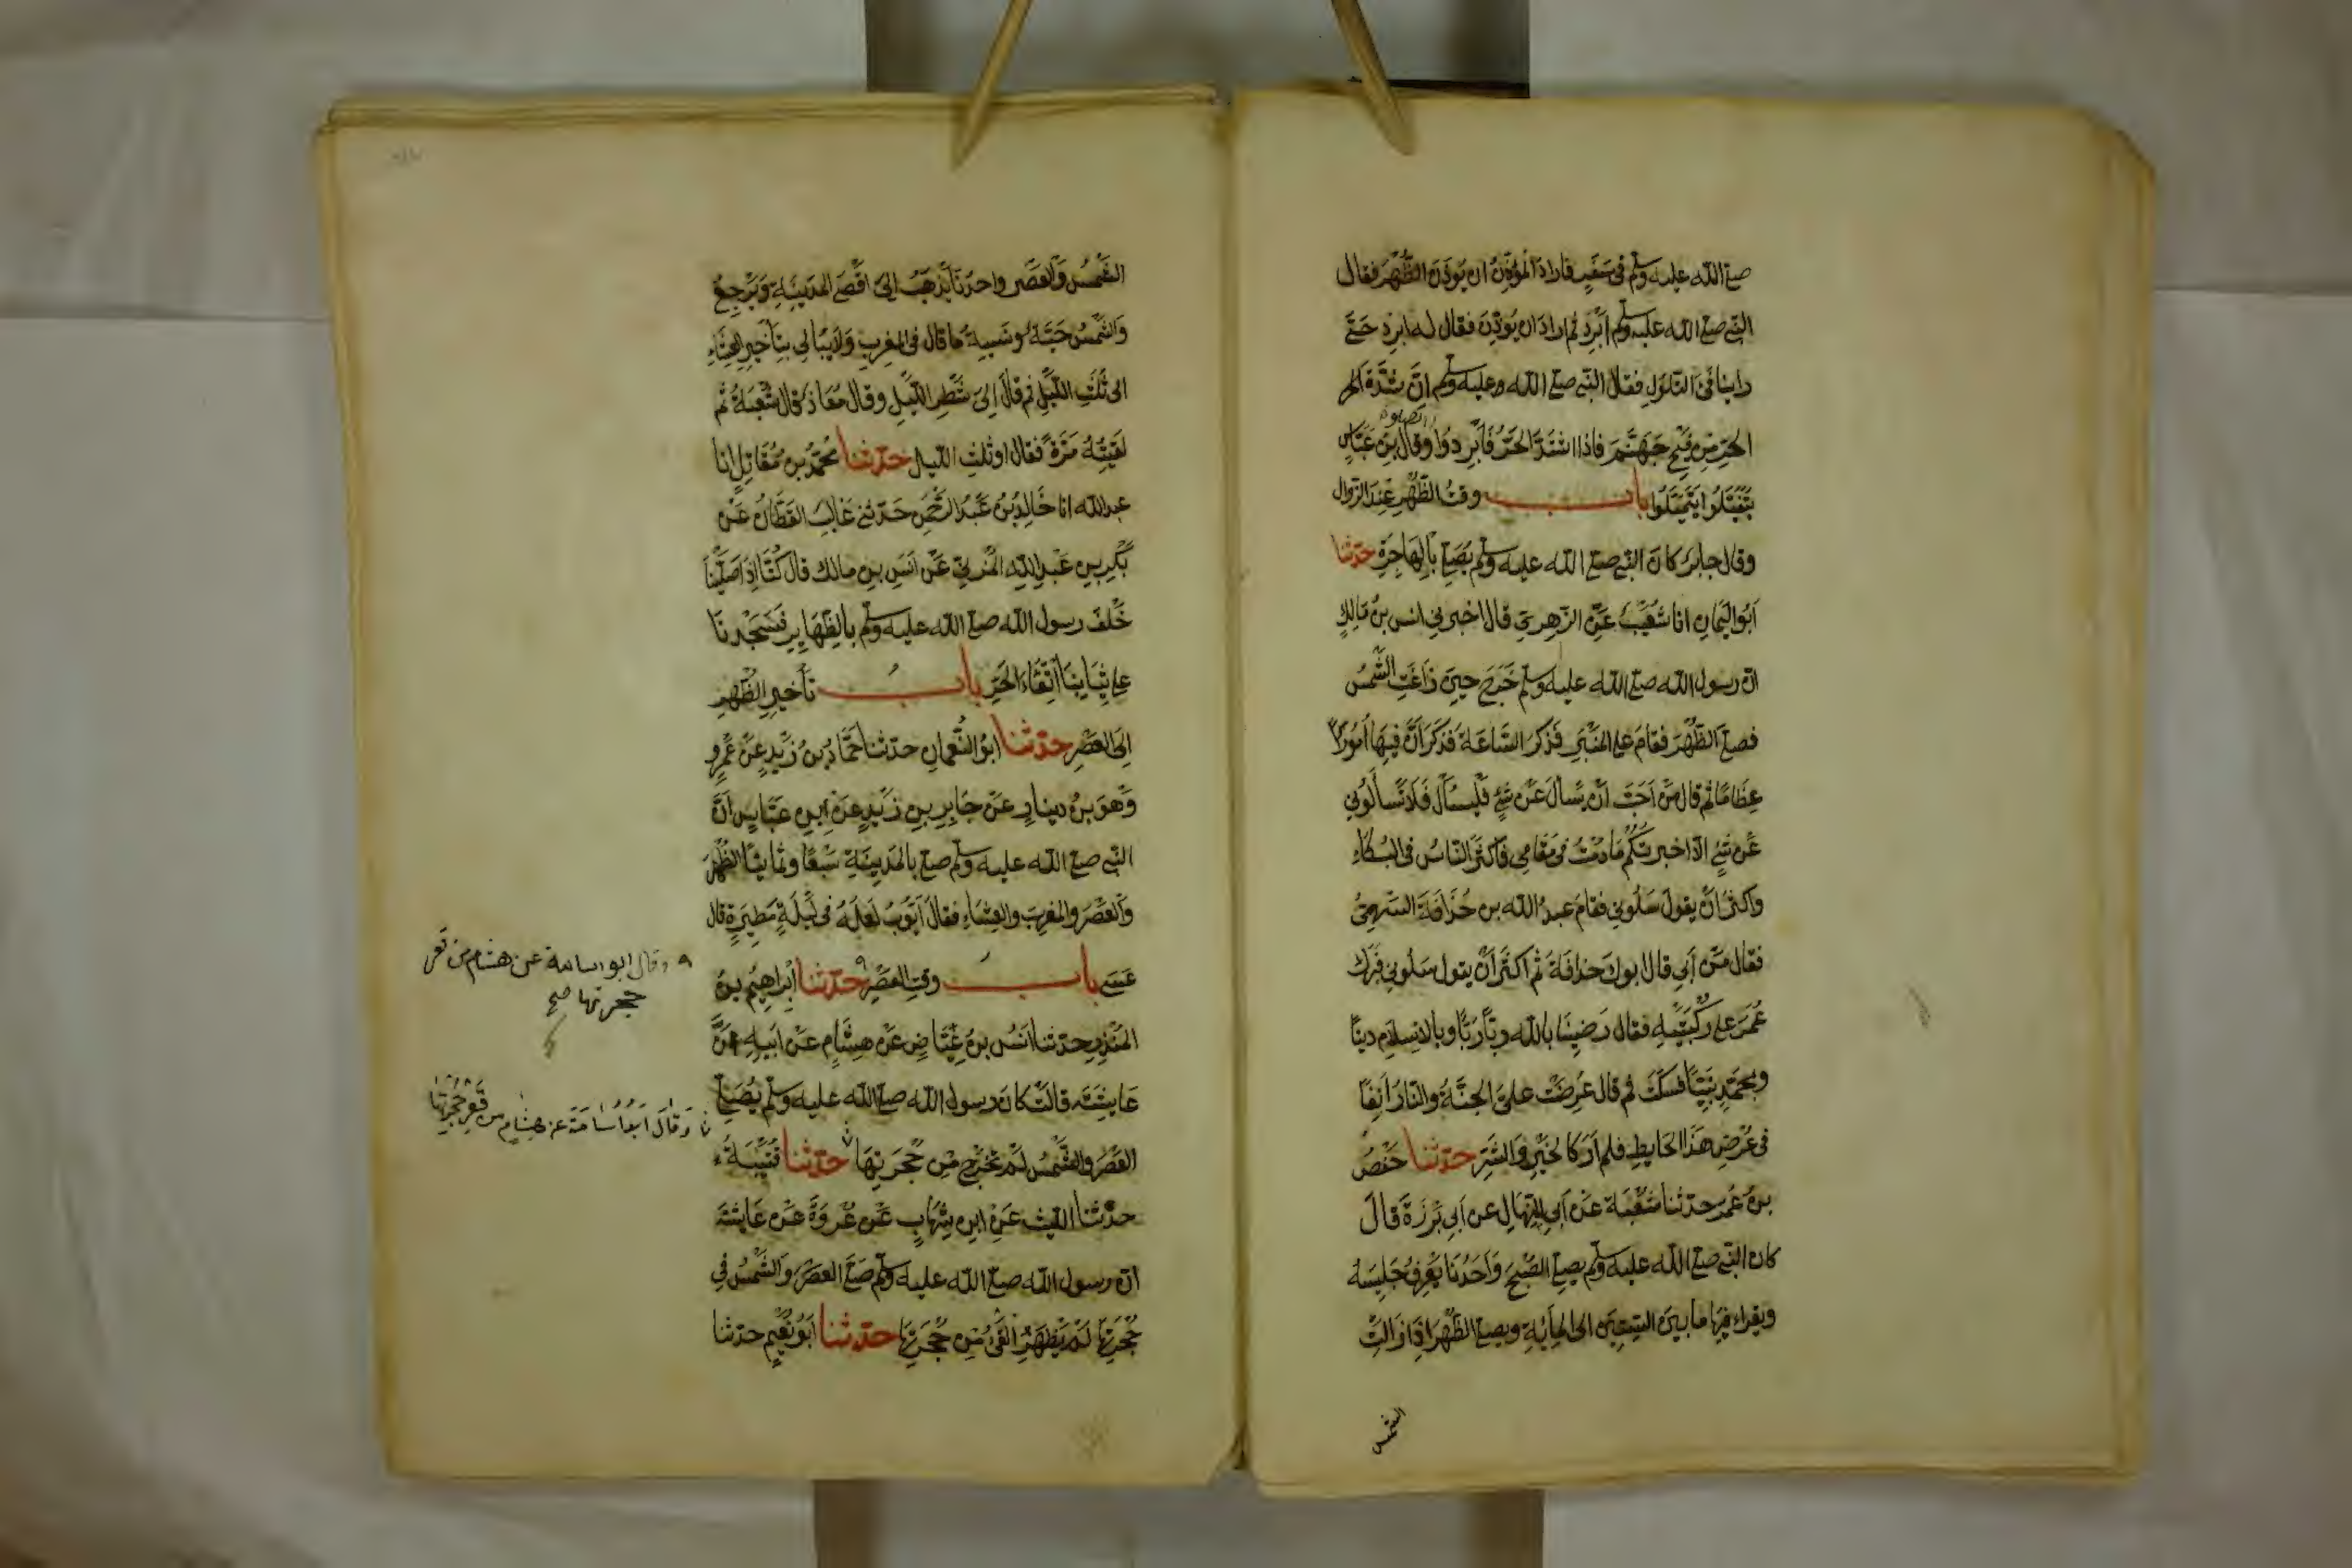 صلى الله عليه وسلم في سَفَرٍ فاراد المؤذن ان يوذن الظهر فقال
النبي صلى الله عليه وسلم أبرد ثم اراد ان يوذن فقال له ابرد حتى
راينا فئ التلول فقال النبي صلى الله عليه وسلم ان شدة الحر
الحر من فيح جهنم فاذا اشتد الحر فابردوا بالصلوة وقال بن عباس
يتفيلوا يتميلوا باب وقت الظهر عند الزوال
وقال جابر كان النبي صلى الله عليه وسلم يصلي بالهاجرة حدثنا
ابو اليمان انا شعيب عن الزهري قال اخبرني انس بن مالك
ان رسول الله صلى الله عليه وسلم خرج حين زاغت الشمس
فصلى الظهر فقام على المنبر فذكر الساعة فذكر ان فيها امورًا
عظاما ثم قال من احب ان يسال عن شئ فليسأل فلا تسألوني
عن شئ الا اخبرتكم ما دمت في مقامي فاكثر الناس في البكاء
واكثر ان يقول سلوني فقام عبد الله بن حذافة السهمي
فقال من أبي قال ابوك حذافة ثم اكثر ان يقول سلوني فبرك
عمر على ركبتيه فقال رضينا بالله ربا وبالاسلام دينا
وبمحمد نبيا فسكت ثم قال عرضت علي الجنة والنار آنفا
في عرض هذا الحايط فلم ار كالخير والشر حدثنا حفص
بن عمر حدثنا شعبة عن ابي المنهال عن ابي برزة قال
كان النبي صلى الله عليه وسلم يصلي الصبح واحدنا يعرف جليسه
ويقراء فيها ما بين الستين الى الماية ويصلي الظهر اذا زالت
الشمس
الشمس والعصر واحدنا يذهب الى اقصى المدينة ويرجع
والشمس حية ونسيت ما قال في المغرب ولا يبالي بتأخير العشاء
الى ثلث الليل ثم قال إلى شطر الليل وقال معاذ قال شعبة ثم
لقيته مرة فقال او ثلث الليل حدثنا محمد بن مقاتل انا
عبد الله انا خالد بن عبد الرحمن حدثني غالب القطان عن
بكر بن عبد الله المزني عن انس بن مالك قال كنا اذا صلينا
خلف رسول الله صلى الله عليه وسلم بالظهاير فسجدنا
على ثيابنا اتقاء الحر باب تأخير الظهر
الى العصر حدثنا ابو النعمان حدثنا حماد بن زيد عن عمرو
وهو بن دينار عن جابر بن زيد عن ابن عباس ان
النبي صلى الله عليه وسلم صلى بالمدينة سبعا وثمانيا الظهر
والعصر والمغرب والعشاء فقال ايوب لعله في ليلة مطيرة قال
عسى باب وقت العصر حدثنا ابراهيم بن
المنذر حدثنا انس بن عياض عن هشام عن ابيه عن
عايشة قالت كان رسول الله صلى الله عليه وسلم يصلي
العصر والشمس لم تخرج من حجرتها حدثنا قتيبة
حدثنا الليث عن ابن شهاب عن عروة عن عايشة
ان رسول الله صلى الله عليه وسلم صلى العصر والشمس في
حجرتها لم يظهر الفئ من حجرتها حدثنا ابو نعيم حدثنا
وقال ابو اسامة عن هشام من قعر
حجرتها صح
وقال ابو اسامة عن هشام من قعر حجرتها